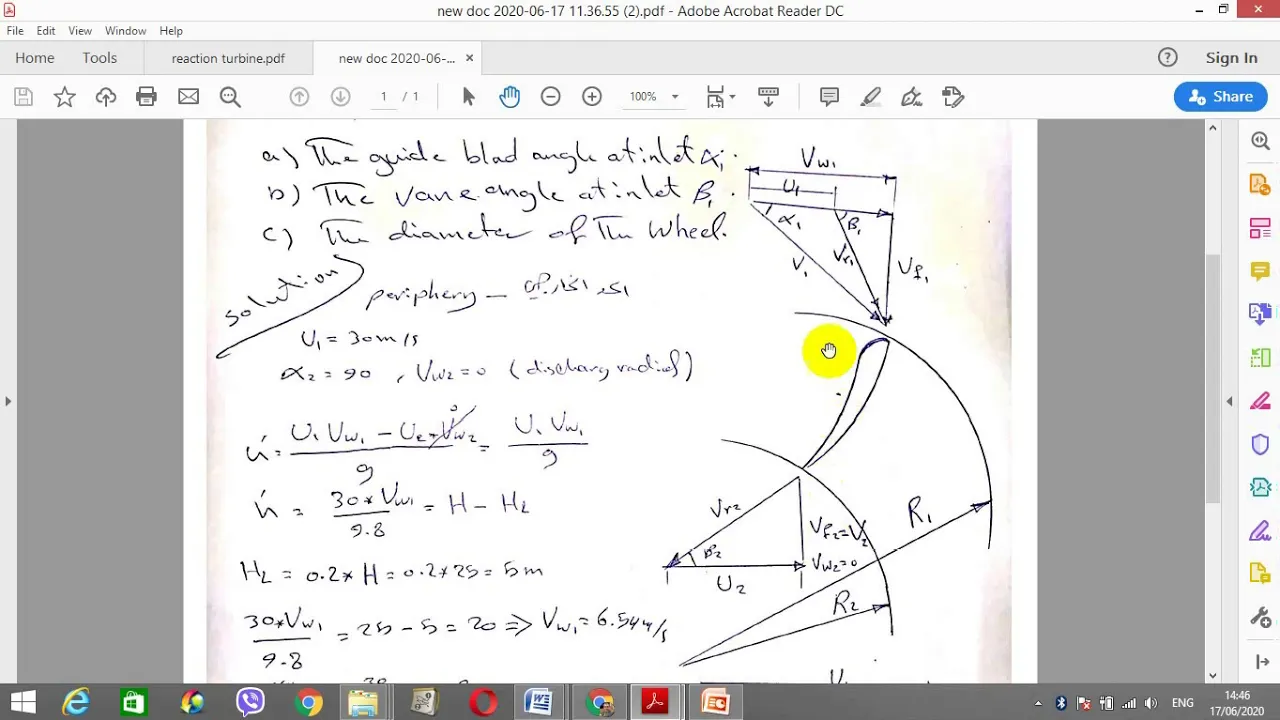 new doc 2020-06-17 11.36.55 (2).pdf - Adobe Acrobat Reader DC
File Edit View Window Help
Home Tools reaction turbine.pdf new doc 2020-06-... × Sign In
1 / 1 100% Share
a) The guide blad angle at inlet α₁.
b) The vane angle at inlet β₁.
c) The diameter of The Wheel.
Solution
periphery —
U₁ = 30 m/s
α₂ = 90 , Vw₂ = 0 (discharg radial)
h́ = (U₁ Vw₁ - U₂*Vw₂)/g = U₁ Vw₁/g
0
h́ = 30*Vw₁/9.8 = H - HL
HL = 0.2*H = 0.2*25 = 5m
30*Vw₁/9.8 = 25-5 = 20 ⇒ Vw₁ = 6.54 m/s
Vw₁
U₁
α₁ β₁
V₁ Vr₁ Vf₁
Vr₂ Vf₂=V₂
β₂ Vw₂=0
U₂
R₁
R₂
U₁
ENG
14:46
17/06/2020